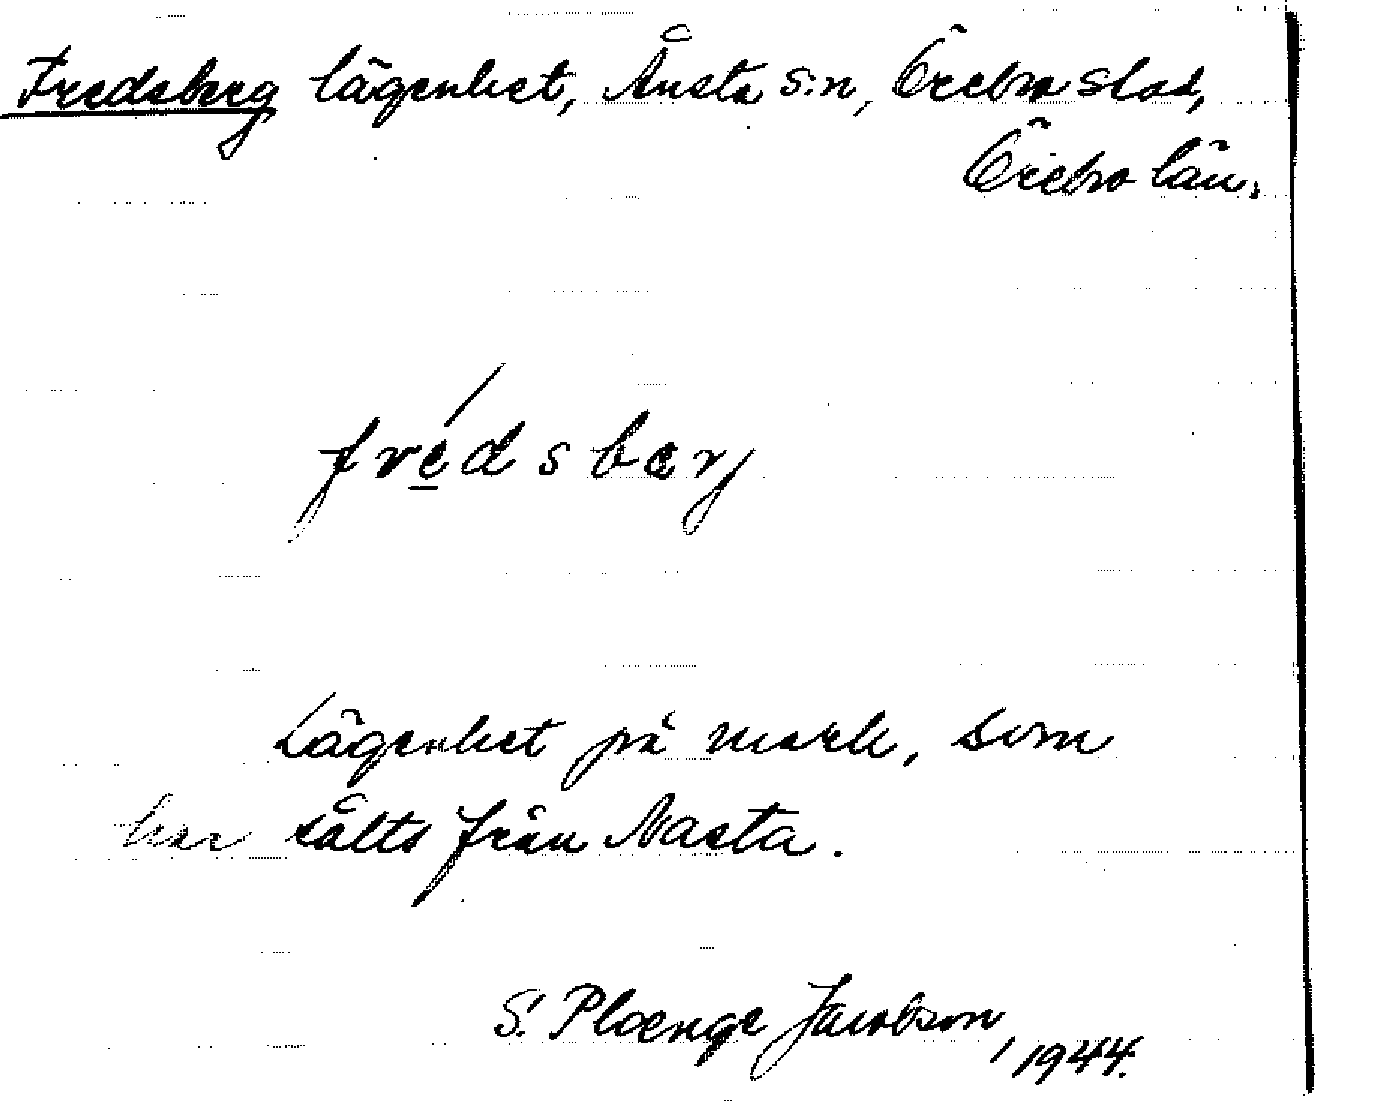 Fredsberg lägenhet, Ånsta s:n, Örebro stad,
Örebro län.
fre̲´dsbærj
Lägenhet på mark, som
har sålts från Nasta.
S. Ploenge Jacobson,
1944.